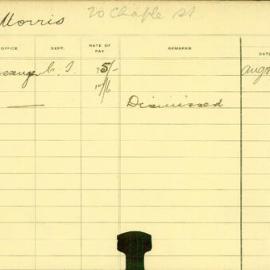 Morris 20 Chaple St
OFFICE DEPT. RATE OF PAY REMARKS DATE
G. T. 5/-
Dismissed